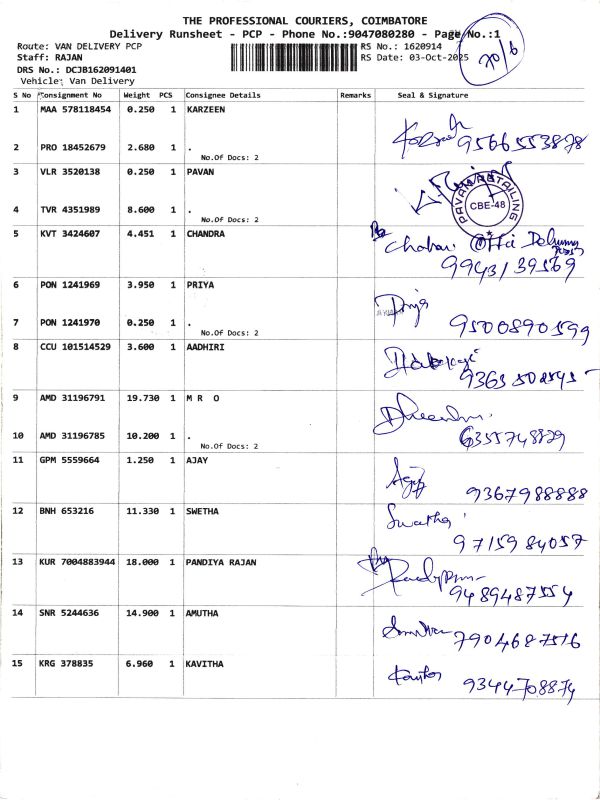 THE PROFESSIONAL COURIERS, COIMBATORE
Delivery Runsheet - PCP - Phone No.:9047080280 - Page No.:1
Route: VAN DELIVERY PCP
RS No.: 1620914
Staff: RAJAN
RS Date: 03-Oct-2025
DRS No.: DCJB162091401
Vehicle: Van Delivery
S No Consignment No Weight PCS Consignee Details Remarks Seal & Signature
1 MAA 578118454 0.250 1 KARZEEN
9566553878
2 PRO 18452679 2.680 1 .
No.Of Docs: 2
3 VLR 3520138 0.250 1 PAVAN
PAVAN RETAILING
CBE-48
4 TVR 4351989 8.600 1 .
No.Of Docs: 2
5 KVT 3424607 4.451 1 CHANDRA
9943139569
6 PON 1241969 3.950 1 PRIYA
Priya
7 PON 1241970 0.250 1 .
9500890599
No.Of Docs: 2
8 CCU 101514529 3.600 1 AADHIRI
9 AMD 31196791 19.730 1 M R O
10 AMD 31196785 10.200 1 .
6355748829
No.Of Docs: 2
11 GPM 5559664 1.250 1 AJAY
9367988888
12 BNH 653216 11.330 1 SWETHA
Swetha
9715984057
13 KUR 7004883944 18.000 1 PANDIYA RAJAN
9489487554
14 SNR 5244636 14.900 1 AMUTHA
7904687516
15 KRG 378835 6.960 1 KAVITHA
9344708874